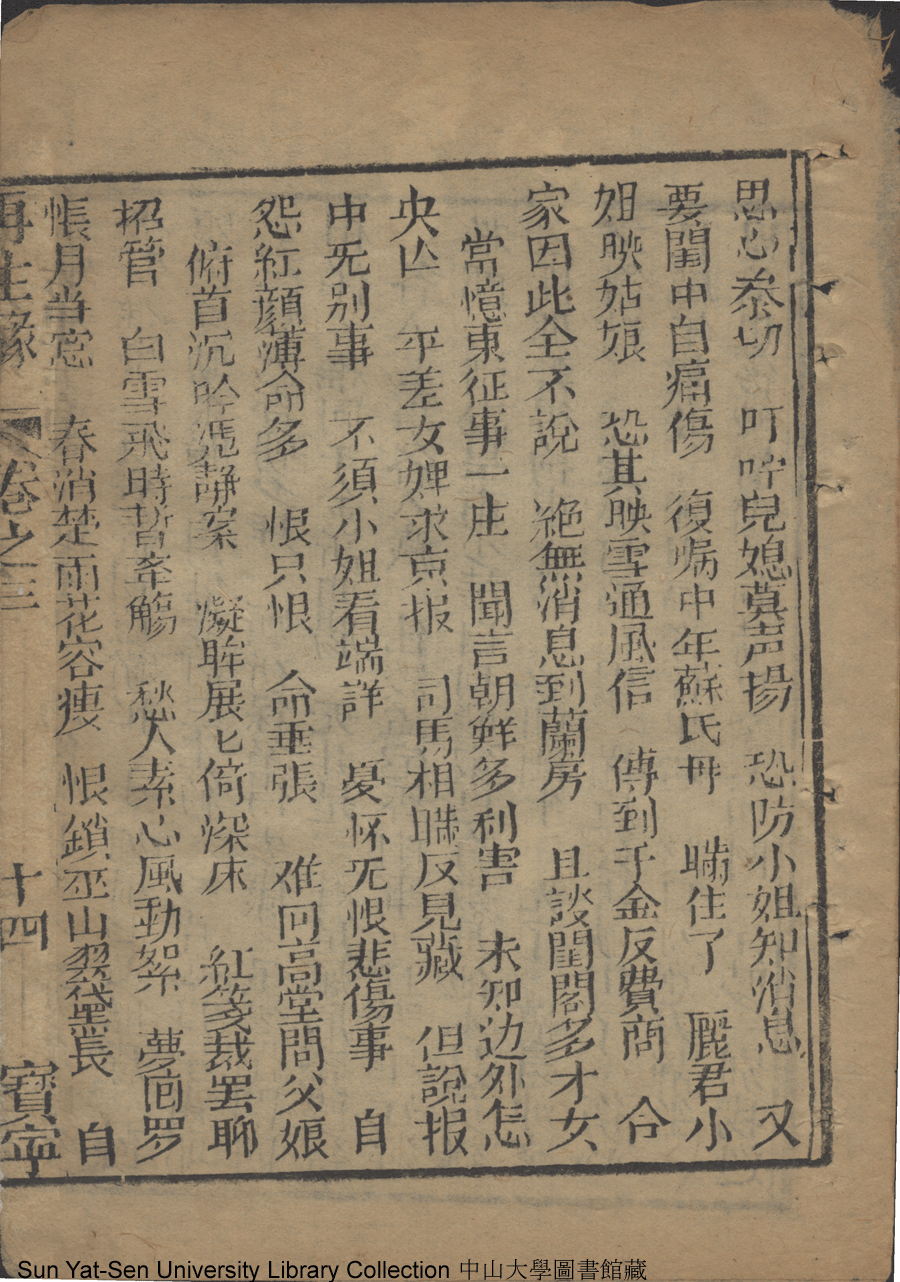 思心忝切　叮嚀兒媳莫声揚　恐防小姐知消息　又
要閨中自痛傷　復嘱中年蘇氏母　瞞住了　麗君小
姐映姑娘　恐其映雪通風信　傳到千金反費商　合
家因此全不說　絕無消息到蘭房　且談閨閣多才女
當憶東征事一庄　聞言朝鮮多利害　未知边外怎
央　平差女婢求京报　司馬相聨反見藏　但說报
中旡別事　不須小姐看端詳　憂怀旡恨悲傷事　自
怨紅顏薄命多　恨只恨　命乖張　难回高堂問父娘
俯首沉吟凴静案　凝眸展匕倚深床　紅箋裁罢聊
招管　白雪飛時暂牽觴　愁人素心風動絮　夢回罗
帳月当窓　春消楚雨花容瘦　恨鎖巫山翠黛長　自
再生緣　卷之三　十四　寶寧
Sun Yat-Sen University Library Collection 中山大學圖書館藏